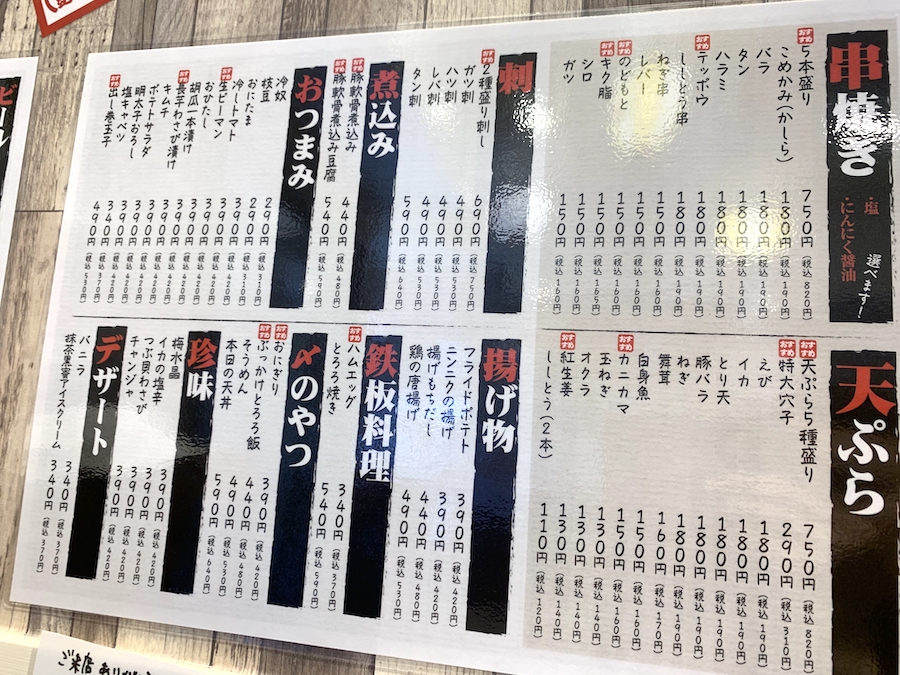 串焼き
・塩
・にんにく醤油
選べます!
おすすめ 5本盛り 750円(税込 820円)
こめかみ(かしら) 180円(税込 190円)
バラ 180円(税込 190円)
タン 180円(税込 190円)
ハラミ 180円(税込 190円)
おすすめ テッポウ 180円(税込 190円)
ししとう串 180円(税込 190円)
ねぎ串 150円(税込 160円)
レバー 150円(税込 160円)
おすすめ のどもと 150円(税込 160円)
おすすめ キク脂 150円(税込 165円)
シロ 150円(税込 160円)
ガツ 150円(税込 160円)
刺
おすすめ 2種盛り刺し 690円(税込 750円)
ガツ刺 490円(税込 530円)
ハツ刺 490円(税込 530円)
レバ刺 490円(税込 530円)
タン刺 590円(税込 640円)
煮込み
おすすめ 豚軟骨煮込み 440円(税込 480円)
おすすめ 豚軟骨煮込み豆腐 540円(税込 590円)
おつまみ
冷奴 290円(税込 310円)
枝豆 290円(税込 310円)
おにたま 390円(税込 420円)
冷しトマト 390円(税込 420円)
おすすめ 生ピーマン 390円(税込 420円)
おひたし 390円(税込 420円)
胡瓜一本漬け 390円(税込 420円)
長芋わさび漬け 390円(税込 420円)
キムチ 390円(税込 420円)
ポテトサラダ 390円(税込 420円)
明太子おろし 390円(税込 420円)
塩キャベツ 340円(税込 370円)
おすすめ 出し巻玉子 490円(税込 530円)
天ぷら
おすすめ 天ぷら5種盛り 750円(税込 820円)
おすすめ 特大穴子 290円(税込 310円)
えび 180円(税込 190円)
イカ 180円(税込 190円)
とり天 180円(税込 190円)
豚バラ 180円(税込 190円)
ねぎ 180円(税込 190円)
舞茸 160円(税込 170円)
白身魚 150円(税込 160円)
おすすめ カニカマ 150円(税込 160円)
玉ねぎ 130円(税込 140円)
オクラ 130円(税込 140円)
おすすめ 紅生姜 130円(税込 140円)
ししとう(2本) 110円(税込 120円)
揚げ物
フライドポテト 390円(税込 420円)
ニンニクの揚げ 390円(税込 420円)
揚げもちだし 440円(税込 480円)
鶏の唐揚げ 490円(税込 530円)
鉄板料理
おすすめ ハムエッグ 340円(税込 370円)
とろろ焼き 540円(税込 590円)
〆のやつ
おすすめ おにぎり 390円(税込 420円)
おすすめ ぶっかけとろろ飯 440円(税込 480円)
そうめん 490円(税込 530円)
本田の天丼 590円(税込 640円)
珍味
梅水晶 390円(税込 420円)
イカの塩辛 390円(税込 420円)
つぶ貝わさび 390円(税込 420円)
チャンジャ 390円(税込 420円)
デザート
バニラ 340円(税込 370円)
抹茶黒蜜アイスクリーム 340円(税込 370円)
ビール
ご来店ありがとう